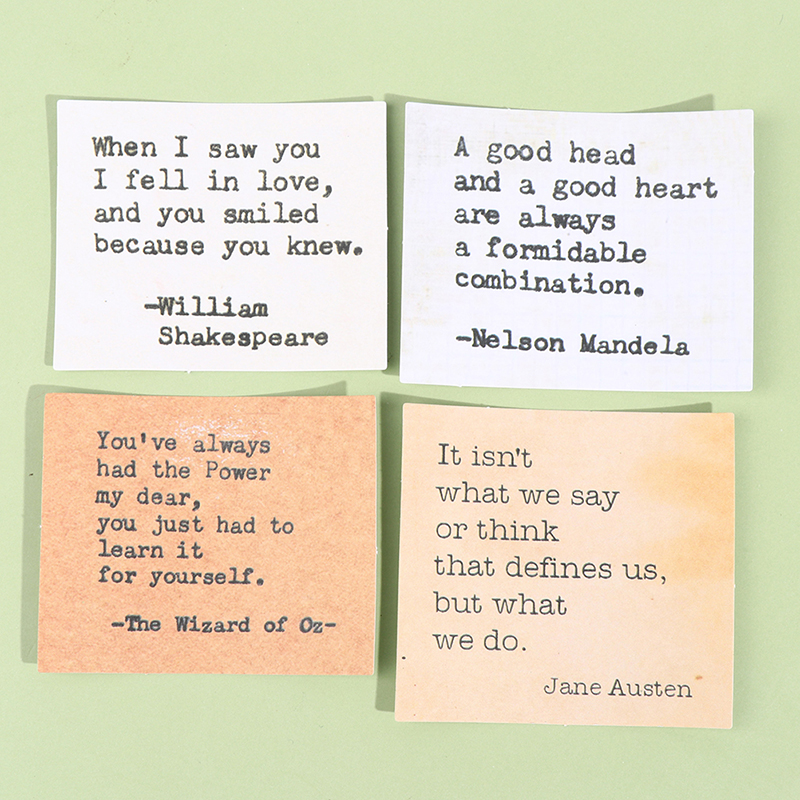 When I saw you
I fell in love,
and you smiled
because you knew.
-William
Shakespeare
A good head
and a good heart
are always
a formidable
combination.
-Nelson Mandela
You've always
had the Power
my dear,
you just had to
learn it
for yourself.
-The Wizard of Oz-
It isn't
what we say
or think
that defines us,
but what
we do.
Jane Austen